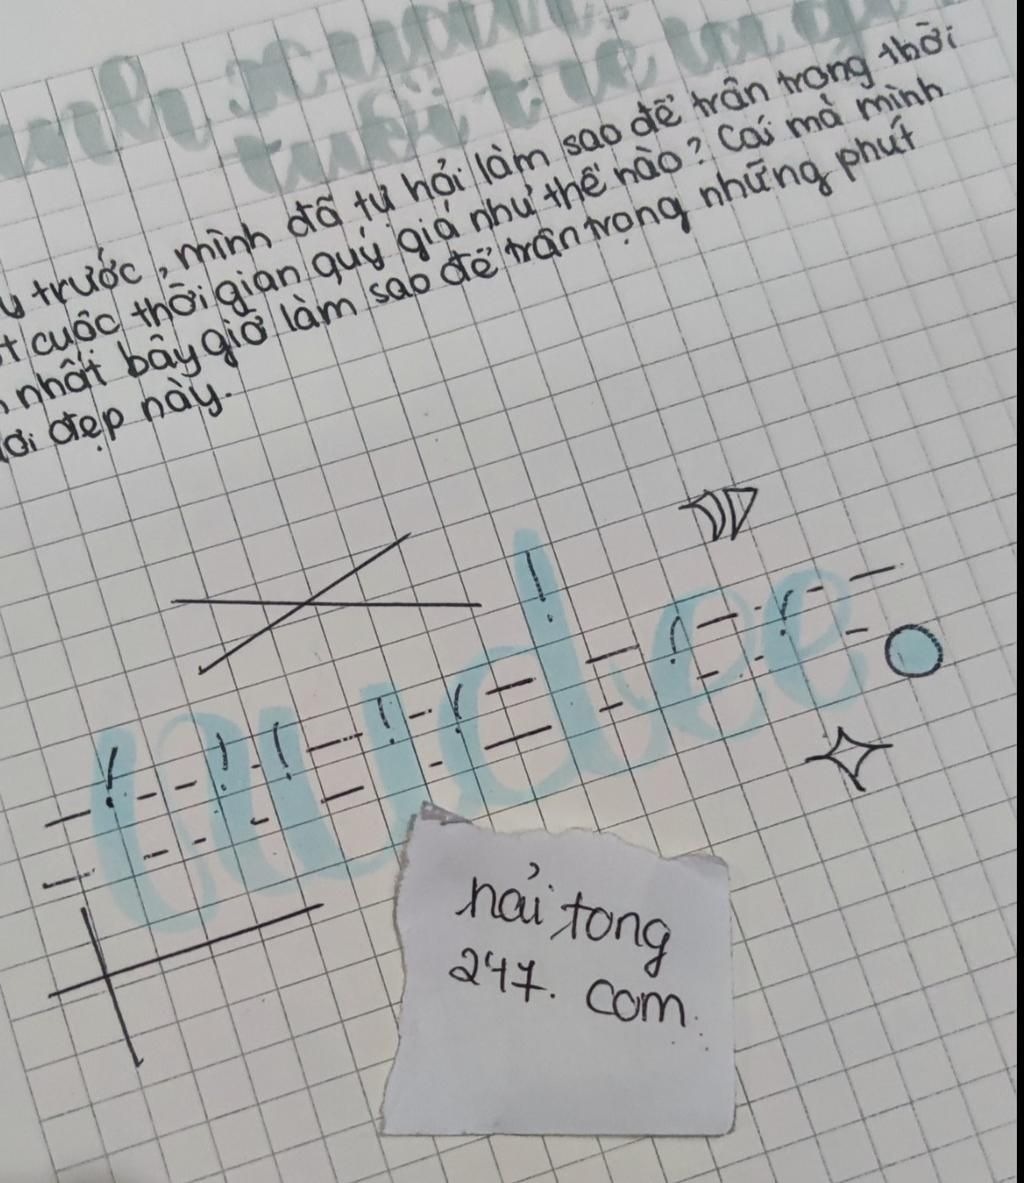 xuân
tuổi trẻ là gì
trước, mình đã tự hỏi làm sao để trân trọng thời
cuộc thời gian quý giá như thế nào? Cái mà mình
nhất bây giờ làm sao để trân trọng những phút
đẹp này.
audee
nải tong
247. com